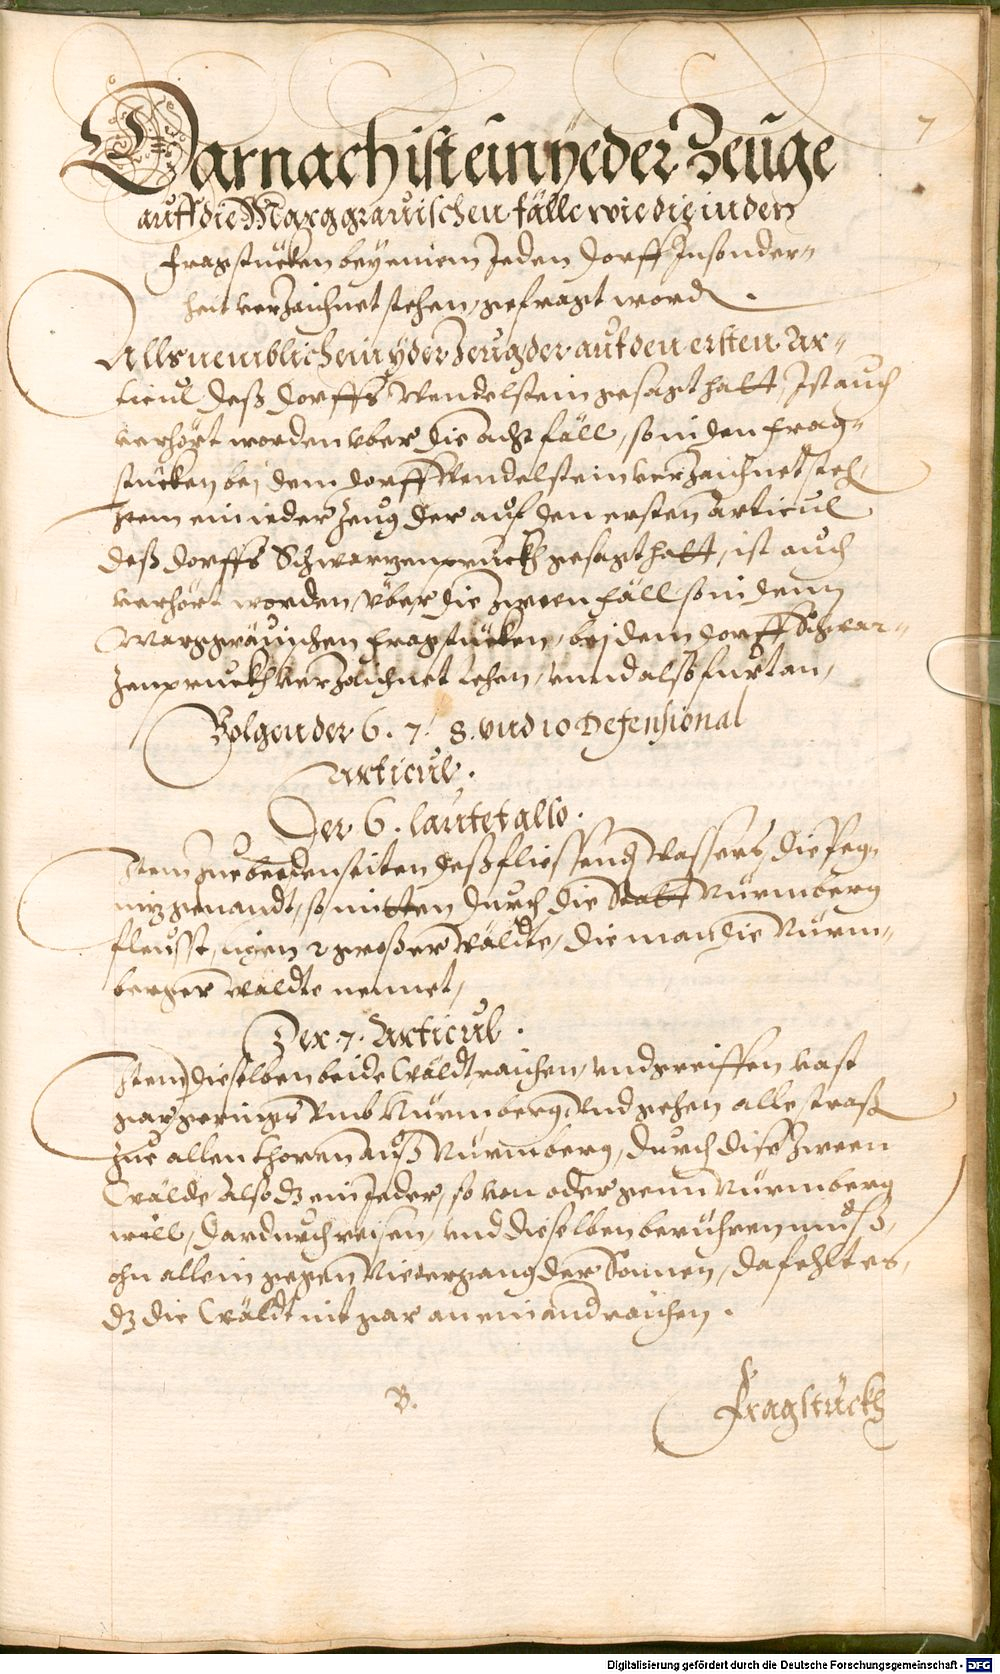 7
Darnach ist ein yeder Zeuge
auff die Marggrauischen fälle wie die in den
fragstucken bey einem Jeden dorff Insonder-
heit verzaichnet stehen, gefragt word.
Alls nemblichein yder Zeug der auf den ersten Ar-
ticul deß dorffs Wendelstein gesagt hatt, Ist auch
verhört worden vber die acht fäll, so in den frag-
stucken bei dem dorff Wendelstein verzaichnet steh,
Item ein ieder zeug der auf den ersten articul
deß dorffs Schwarzenpruckh gesagt hatt, ist auch
verhört worden, über die zween fäll so in denn
Marggräuischen fragstucken, bei dem dorff Schwar-
zenpruckh verzaichnet stehen, vnnd also furtan,
Volgen der 6. 7. 8. vnd 10 Defensional
Articul.
Der 6. lautet also.
Item zue beeden seiten deß fliessends Wassers, die Peg-
niz genandt, so mitten durch die Statt Nürmberg
fleusst, ligen 2 großer Wäldte, die man die Nürm-
berger Wäldte nennet,
Der 7. Articul.
Item dieselben beide Wäldt raichen, vnd greiffen vast
gar gerings vmb Nürmberg, vnd gehen alle straß
zue allen thoren auß Nurmberg, durch dise zween
Wälde also dz ein Jeder, so von oder genn Nürmberg
will, dardurch reisen, vnd dieselben berühren muß,
ohn allein gegen Niedergang der Sonnen, da fehlt es,
dz die Wäldt nit gar an einand raichen.
B.
Fragstuckh
Digitalisierung gefördert durch die Deutsche Forschungsgemeinschaft - DFG